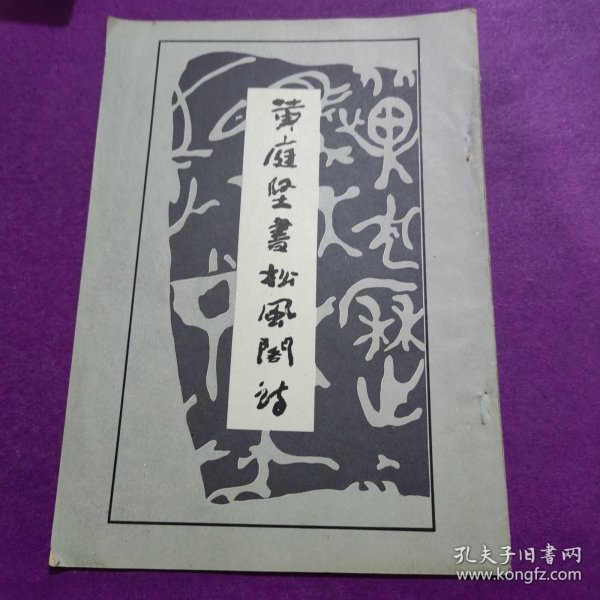 黄庭坚書松風閣詩
孔夫子旧書网
www.kongfz.com